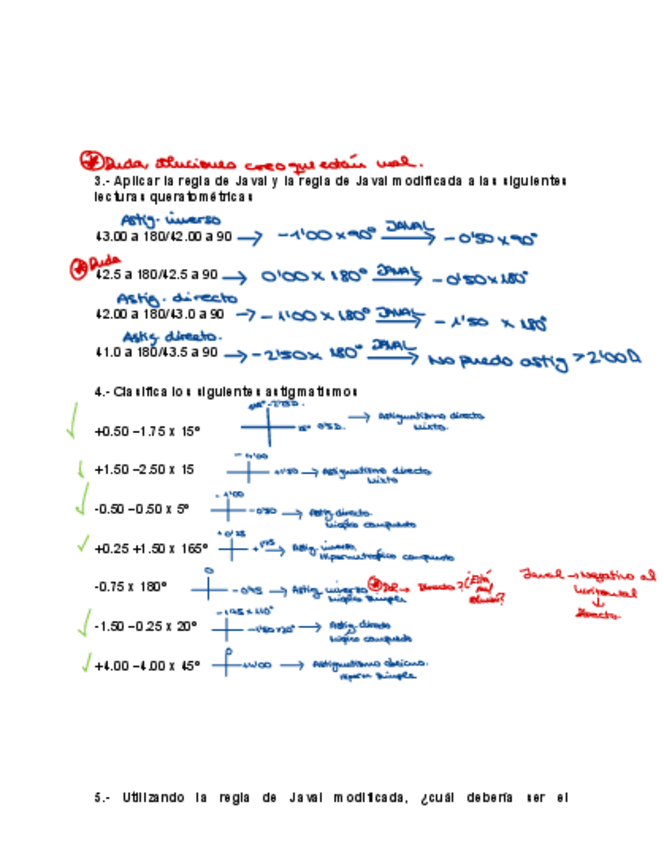 * Duda, soluciones creo que están mal.
3.- Aplicar la regla de Javal y la regla de Javal modificada a las siguientes
lecturas queratométricas
Astig. inverso
43.00 a 180/42.00 a 90 → -1'00 x 90° JAVAL → -0'50 x 90°
* Duda
42.5 a 180/42.5 a 90 → 0'00 x 180° JAVAL → -0'50 x 180°
Astig. directo
42.00 a 180/43.0 a 90 → -1'00 x 180° JAVAL → -1'50 x 180°
Astig directo.
41.0 a 180/43.5 a 90 → -2'50 x 180° JAVAL → No puedo astig > 2'00D
4.- Clasifica los siguientes astigmatismos
+0.50 –1.75 x 15° → Astigmatismo directo
mixto.
-1'00
+1.50 –2.50 x 15 +1'50 → Astigmatismo directo
mixto
-1'00
-0.50 –0.50 x 5° -0'50 → Astig. directo.
miópico compuesto
+0.25 +1.50 x 165° → Astig. inverso.
Hipermetrópico compuesto
0
-0.75 x 180° → Astig. inverso * Directo? ¿Está mal
miópico simple
Javal → Negativo al
horizontal
↓
Directo.
-1.50 –0.25 x 20° → Astig. directo
miópico compuesto
0
+4.00 –4.00 x 45° → Astigmatismo oblicuo.
simple
5.- Utilizando la regla de Javal modificada, ¿cuál debería ser el